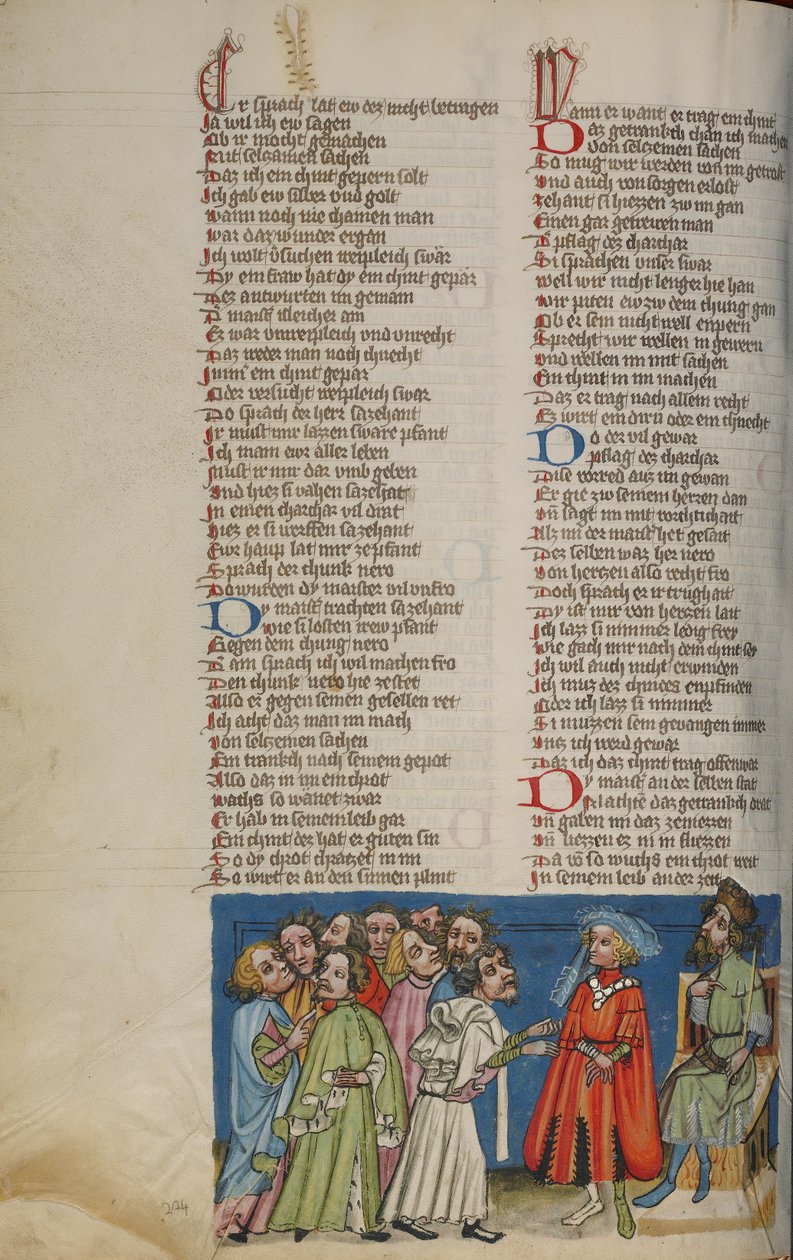 Er sprach lat ew dez nicht betragen
Ja wil ich ew sagen
Ob ir mocht gemachen
Mit selczamen sachen
Daz ich ein chint gepern solt
Ich gab ew silber vnd golt
wann noch nie chainen man
war daz wunder ergan
Ich wolt v̓suchen weipleich swar
Dy ein fraw hat dy ein chint gepar
Dez antwurten im gemain
D̓ maist̓ ileicher ain
Ez war vnweipleich vnd vnrecht
Daz weder man noch chnecht
Nimm̓ ein chint gepar
Oder versucht weipleich swar
Do sprach der herr sazehant
Ir must mir lazzen sware pfant
Ich main ewr aller leben
Must ir mir dar vmb geben
Vnd hiez si vahen sazehant
In einen charchar vil drat
Hiez er si werffen sazehant
Ewr haup lat mir zepfant
Sprach der chunk nero
Do wurden dy maister vil vnfro
Dy maist̓ trachten sazehant
wie si losten irew pfant
Gegen dem chung nero
D̓ ain sprach ich wil machen fro
Den chunk nero hie zestet
Also er gegen seinen gesellen ret
Ich acht daz man im mach
Von selczemen sachen
Ein trankch nach seinem gepot
Also daz in im ein chrot
wachs so wanet zwar
Er hab in seinem leib gar
Ein chint der hat er guten sin
So dy chrot chraczet in im
So wirt er an den sinnen plint
Wann er want er trag ein chint
Daz getrankch chan ich machen
Von selczemen sachen
So mug wir werden von im getrost
Vnd auch von sorgen erlost
Zehant si hiezzen zw im gan
Einen gar getrewen man
D̓ pflag dez charchar
Si sprachen vnser swar
Well wir nicht lenger hie han
wir piten ew zw dem chung gan
Ob er sein nicht well enpern
Sprecht wir wellen in gewern
Vnd wellen im mit sachen
Ein chint in im machen
Daz er trag nach allem recht
Ez wirt ein dirn oder ein chnecht
Do der vil gewar
pflag dez charchar
Dise vorred auz im gewan
Er gie zw seinem herzen dan
Vn̄ sagt im mit vorchtichait
Alz im der maist̓ het gesait
Dez selben waz her nero
Von herczen also recht fro
Doch sprach er ir trughait
Dy ist mir von herczen lait
Ich lazz si nimmer ledig frey
wie gach mir nach dem chint sey
Ich wil auch nicht erwinden
Ich muz dez chindes enpfinden
Oder ich lazz si nimmer
Si muzzen sein gevangen immer
Vncz ich werd gewar
Daz ich daz chint trag offenwar
Dy maist̓ an der selben stat
Machte daz getrankch drat
Vn̄ gaben im daz zeniezzen
Vn̄ liezzen ez in in fliezzen
Da vō so wuchs ein chrot weit
In seinem leib an der zeit
274